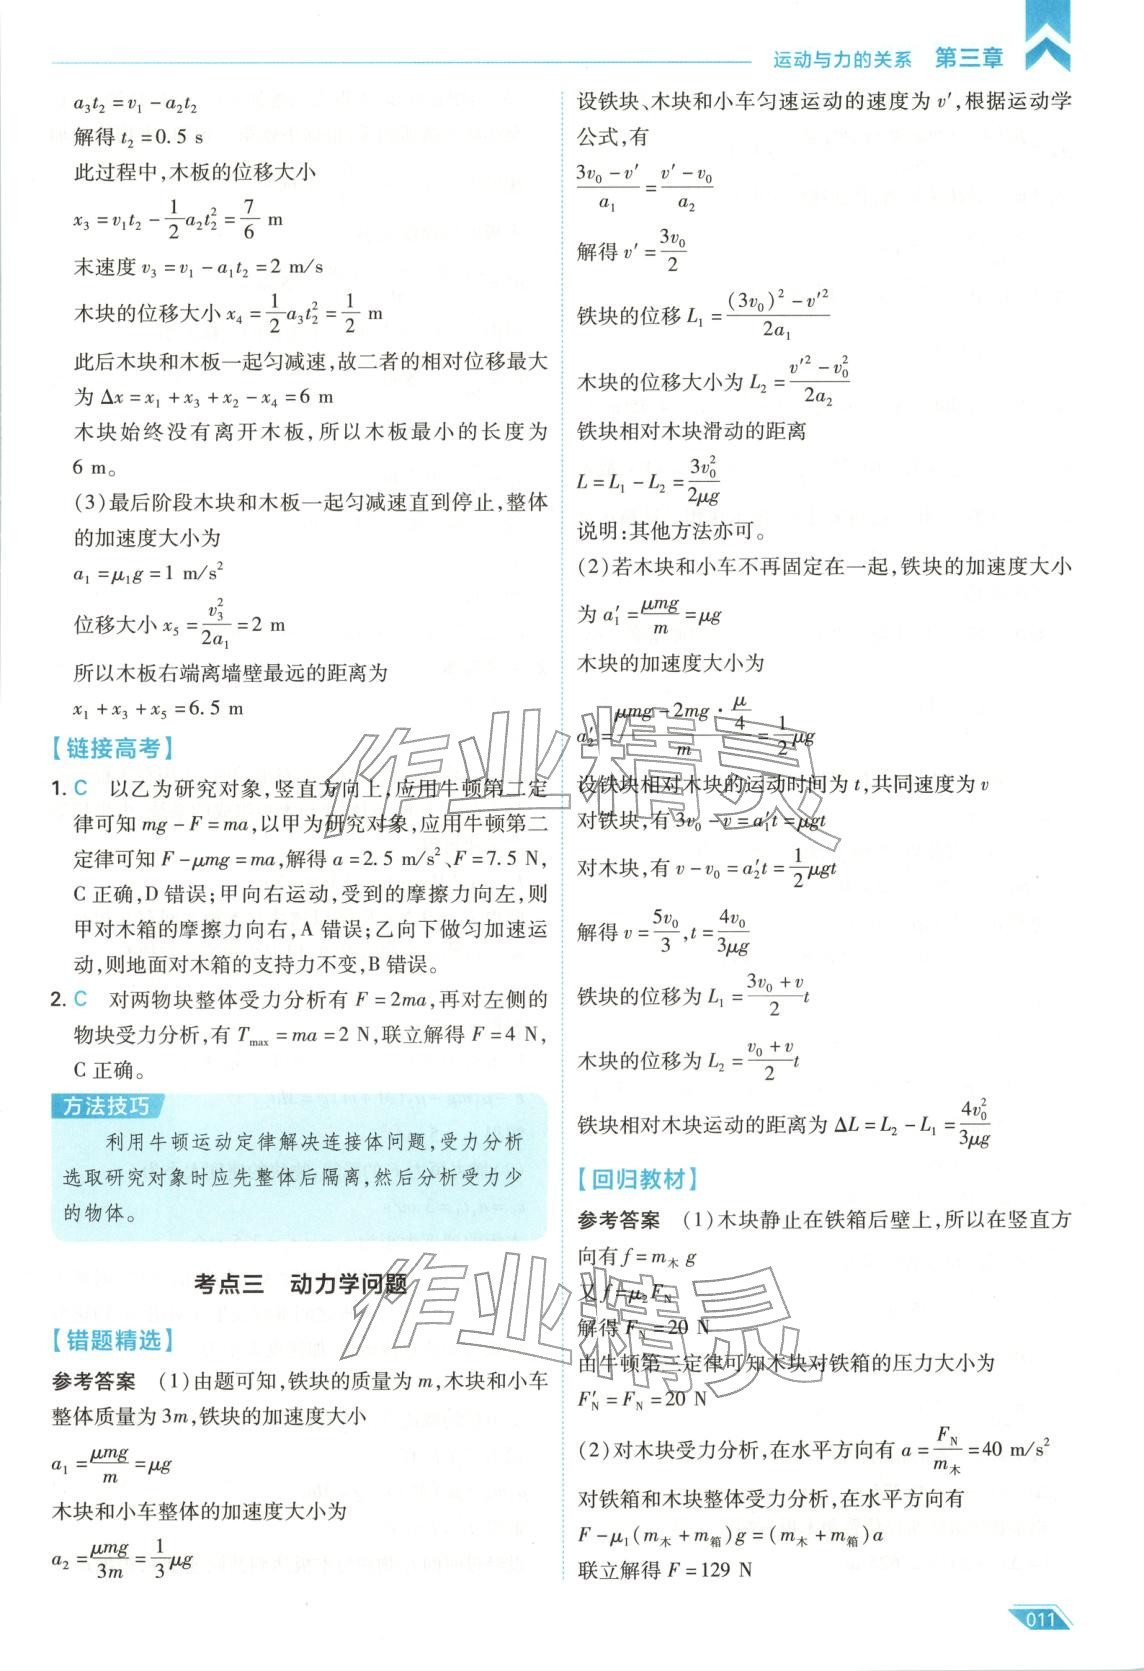 运动与力的关系 第三章
a₃t₂=v₁-a₂t₂
解得 t₂=0.5 s
此过程中,木板的位移大小
x₃=v₁t₂-\frac{1}{2}a₂t₂²=\frac{7}{6} m
末速度 v₃=v₁-a₁t₂=2 m/s
木块的位移大小 x₄=\frac{1}{2}a₃t₂²=\frac{1}{2} m
此后木块和木板一起匀减速,故二者的相对位移最大
为 Δx=x₁+x₃+x₂-x₄=6 m
木块始终没有离开木板,所以木板最小的长度为
6 m。
(3)最后阶段木块和木板一起匀减速直到停止,整体
的加速度大小为
a₁=μ₁g=1 m/s²
位移大小 x₅=\frac{v₃²}{2a₁}=2 m
所以木板右端离墙壁最远的距离为
x₁+x₃+x₅=6.5 m
【链接高考】
1. C 以乙为研究对象,竖直方向上,应用牛顿第二定
律可知 mg-F=ma,以甲为研究对象,应用牛顿第二
定律可知 F-μmg=ma,解得 a=2.5 m/s²、F=7.5 N,
C 正确,D 错误;甲向右运动,受到的摩擦力向左,则
甲对木箱的摩擦力向右,A 错误;乙向下做匀加速运
动,则地面对木箱的支持力不变,B 错误。
2. C 对两物块整体受力分析有 F=2ma,再对左侧的
物块受力分析,有 T_max=ma=2 N,联立解得 F=4 N,
C 正确。
方法技巧
利用牛顿运动定律解决连接体问题,受力分析
选取研究对象时应先整体后隔离,然后分析受力少
的物体。
考点三 动力学问题
【错题精选】
参考答案 (1)由题可知,铁块的质量为 m,木块和小车
整体质量为 3m,铁块的加速度大小
a₁=\frac{μmg}{m}=μg
木块和小车整体的加速度大小为
a₂=\frac{μmg}{3m}=\frac{1}{3}μg
设铁块、木块和小车匀速运动的速度为 v′,根据运动学
公式,有
\frac{3v₀-v′}{a₁}=\frac{v′-v₀}{a₂}
解得 v′=\frac{3v₀}{2}
铁块的位移 L₁=\frac{(3v₀)²-v′²}{2a₁}
木块的位移大小为 L₂=\frac{v′²-v₀²}{2a₂}
铁块相对木块滑动的距离
L=L₁-L₂=\frac{3v₀²}{2μg}
说明:其他方法亦可。
(2)若木块和小车不再固定在一起,铁块的加速度大小
为 a₁′=\frac{μmg}{m}=μg
木块的加速度大小为
a₂′=\frac{μmg-2mg·\frac{μ}{4}}{m}=\frac{1}{2}μg
设铁块相对木块的运动时间为 t,共同速度为 v
对铁块,有 3v₀-v=a₁′t=μgt
对木块,有 v-v₀=a₂′t=\frac{1}{2}μgt
解得 v=\frac{5v₀}{3},t=\frac{4v₀}{3μg}
铁块的位移为 L₁=\frac{3v₀+v}{2}t
木块的位移为 L₂=\frac{v₀+v}{2}t
铁块相对木块运动的距离为 ΔL=L₂-L₁=\frac{4v₀²}{3μg}
【回归教材】
参考答案 (1)木块静止在铁箱后壁上,所以在竖直方
向有 f=m_木 g
又 f=μ₂F_N
解得 F_N=20 N
由牛顿第三定律可知木块对铁箱的压力大小为
F_N′=F_N=20 N
(2)对木块受力分析,在水平方向有 a=\frac{F_N}{m_木}=40 m/s²
对铁箱和木块整体受力分析,在水平方向有
F-μ₁(m_木+m_箱)g=(m_木+m_箱)a
联立解得 F=129 N
作业精灵
作业精灵
011